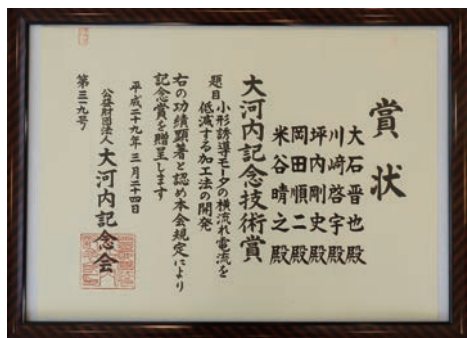 賞状
大石晋也殿
川﨑啓宇殿
坪内剛史殿
岡田順二殿
米谷晴之殿
大河内記念技術賞
題目 小形誘導モータの横流れ電流を
低減する加工法の開発
右の功績顕著と認め本会規定により
記念賞を贈呈します
平成二十九年三月二十四日
公益財団法人 大河内記念会
第三一九号